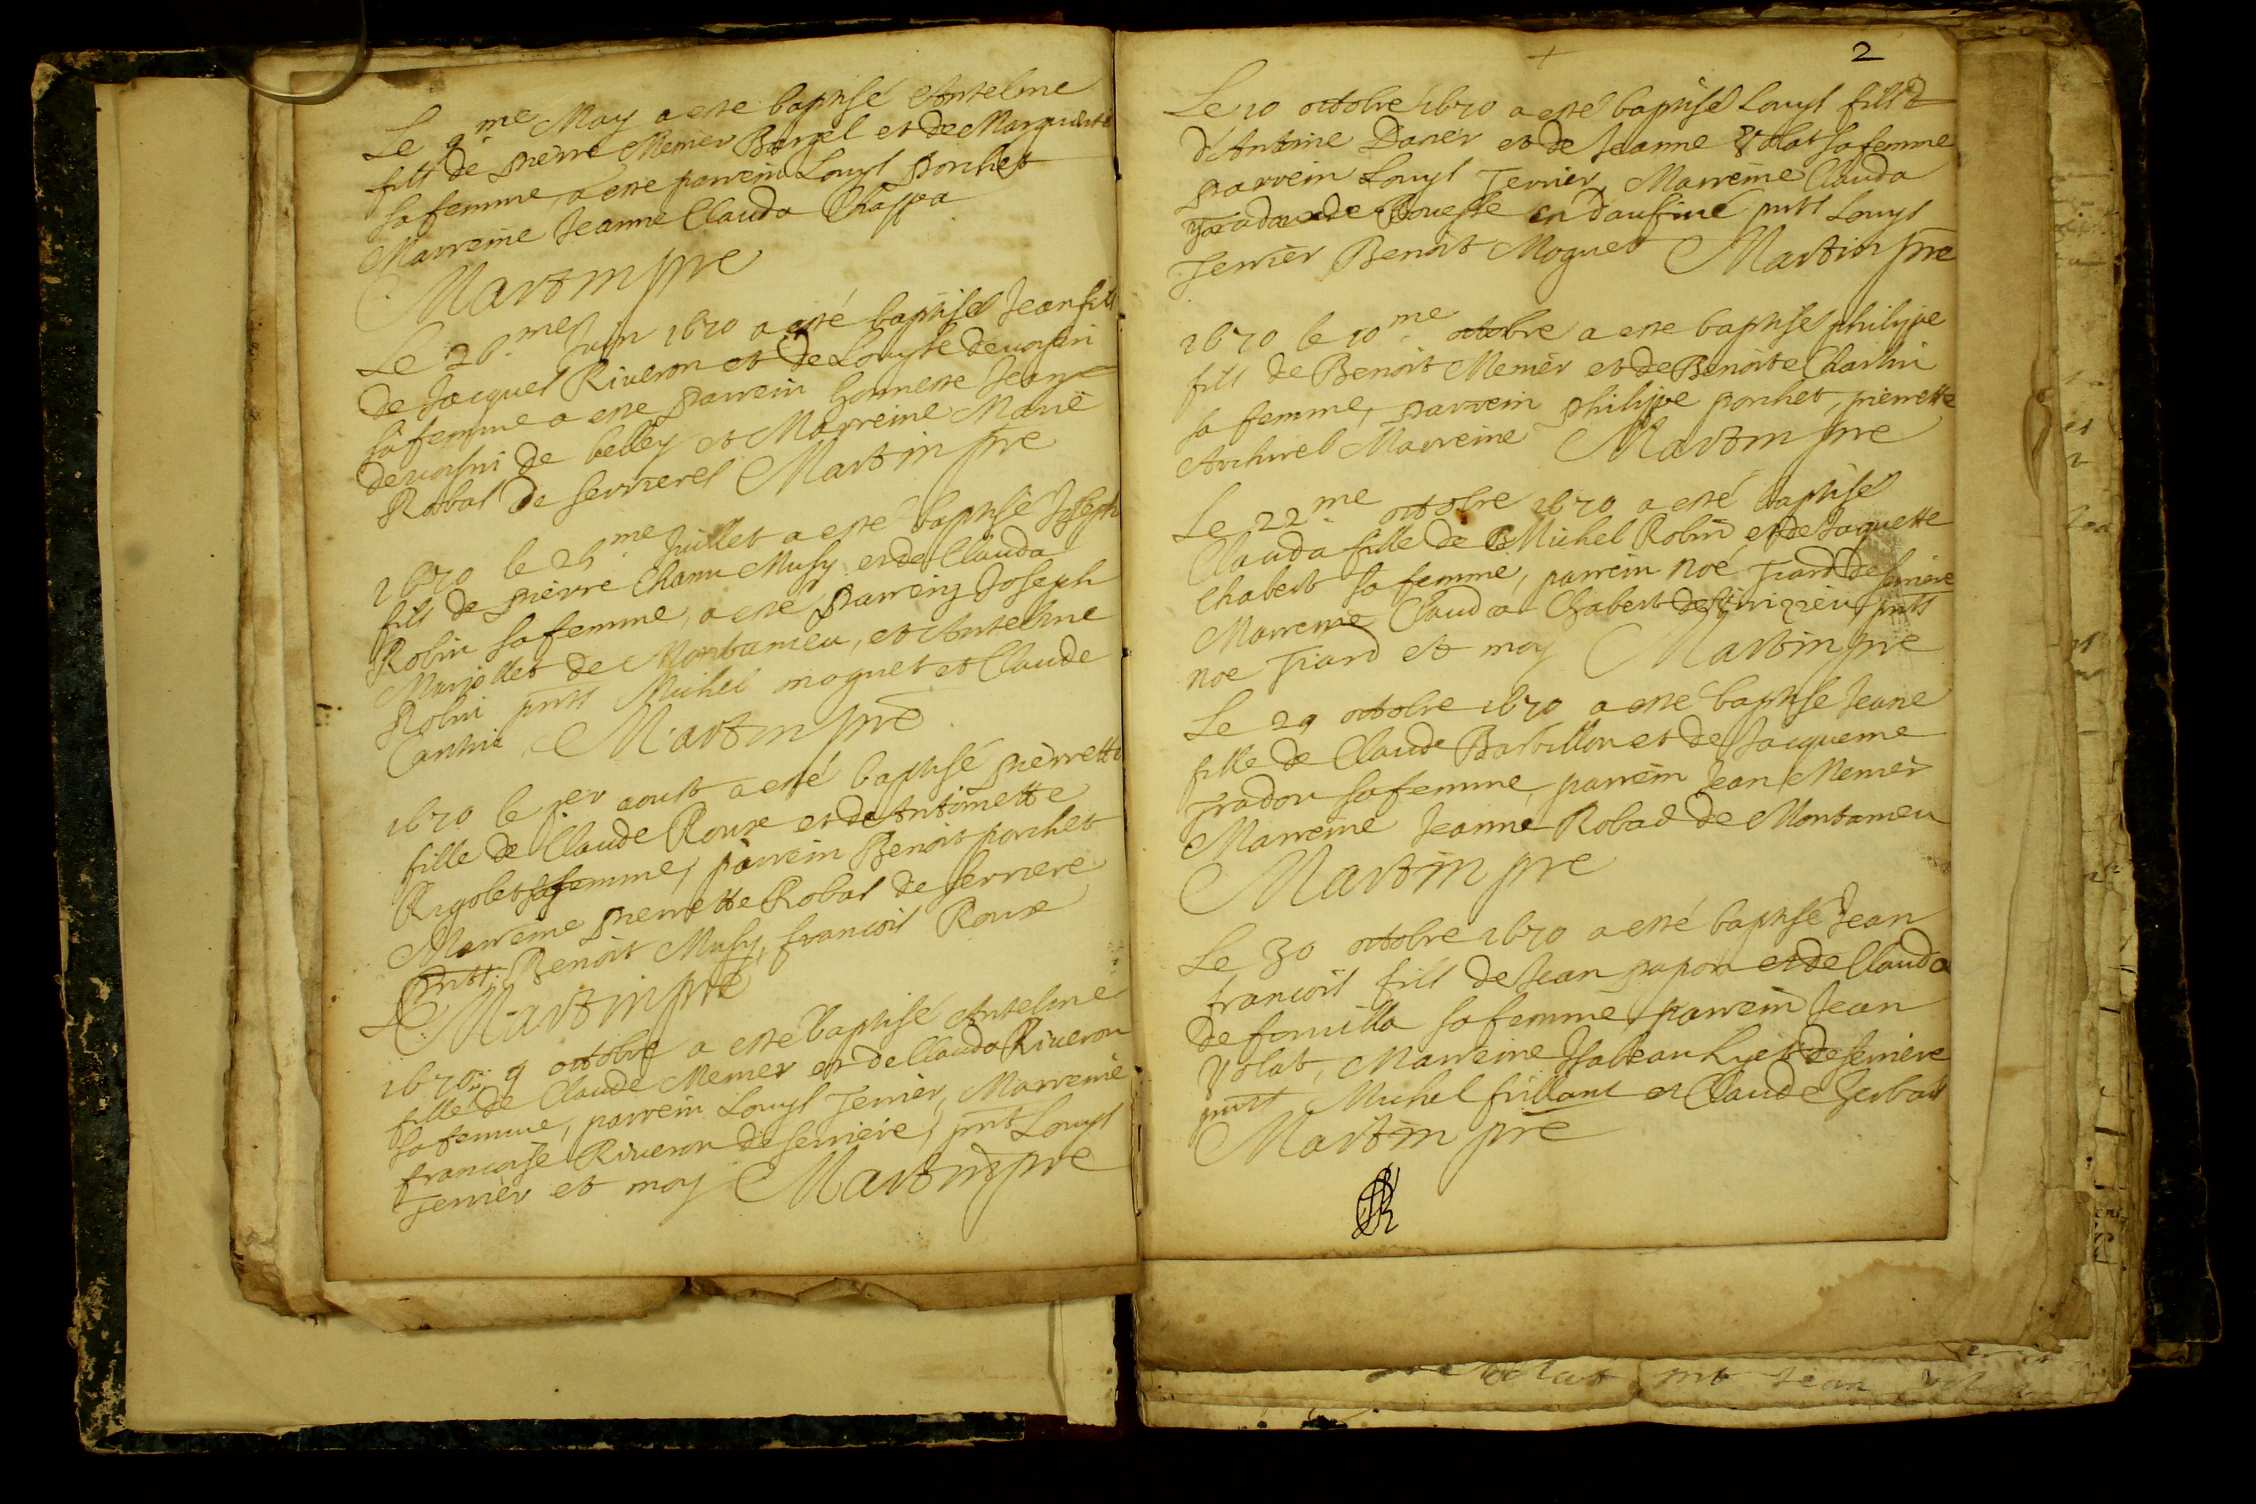 Le 9.me May a esté baptisé Antelme
fils de pierre Memer Borgel et de Marguerite
sa femme, a esté parrein Louys Porchet
Marreine Jeanne Clauda Chappa
Martin pre
Le 26.me Juin 1670 a esté baptisé Jean fils
de Jacques Riueron et de Louyse deuorsin
sa femme a esté parrein honneste Jean
deuorsin de belley et Marreine Marie
Robat de serrieres Martin pre
1670 le 25.me Juillet a esté baptisé Joseph
fils de pierre Chanu Musy et de Clauda
Robin sa femme, a esté parrein Joseph
de Montanieu, et Antelme
Robin pnts Michel moguet et Claude
Martin pre
1670 le jer aoust a esté baptisé pierrette
fille de Claude Roux et de Antoinette
Rigolet sa femme, parrein Benoit porchet
Marreine pierrette Robat de serriere
pnts. Benoit Musy, francois Roux
Martin pre
1670 9 octobre a esté baptisé Antelme
fille de Claude Memer et de Clauda Riueron
sa femme, parrein Louys Terrier, Marreine
francoise Riueron de serriere, pnt Louys
Terrier et moy Martin pre
2
Le 10 octobre 1670 a esté baptisé Louys fils d
d'Antoine Daner et de Jeanne Volat sa femme
parrein Louys Terrier, Marreine Clauda
de Bouesse en daufiné pnts Louys
Terrier Benoit Moguet Martin pre
1670 le 10.me octobre a esté baptisé philippe
fils de Benoit Memer et de Benoite Charlin
sa femme, parrein philippe porchet, pierrette
Marreine Martin pre
Le 22.me octobre 1670 a esté baptisé
Clauda fille de Michel Robin et de Jaquette
Chabert sa femme, parrein noé Tiard de serriere
Marreine Clauda Chabert de pnts
noe Tiard et moy Martin pre
Le 29 octobre 1670 a esté baptisé Jeane
fille de Claude Barbillon et de Jacqueme
Tradou sa femme, parrein Jean Memer
Marreine Jeanne Robat de Montanieu
Martin pre
Le 30 octobre 1670 a esté baptisé Jean
francois fils de Jean papon et de Clauda
de fornilla sa femme, parrein Jean
Volat, Marreine Isabeau de serriere
pnts Michel frillant et Claude Gerbat
Martin pre